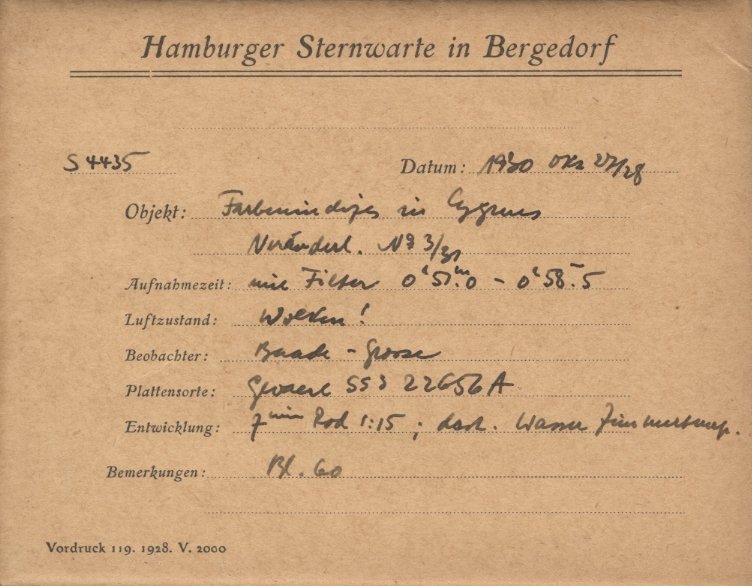 Hamburger Sternwarte in Bergedorf
S 4435 Datum: 1930 Okt 27/28
Objekt: Farbenindizes in Cygnus
Veränderl. No 3/31
Aufnahmezeit: mit Filter 0h 57m.0 – 0h 58m.5
Luftzustand: Wolken!
Beobachter: Baade – Grosse
Plattensorte: SS 3 22656 A
Entwicklung: 7 min Rod 1:15; dest. Wasser Zimmertemp.
Bemerkungen: Bl. 60
Vordruck 119. 1928. V. 2000